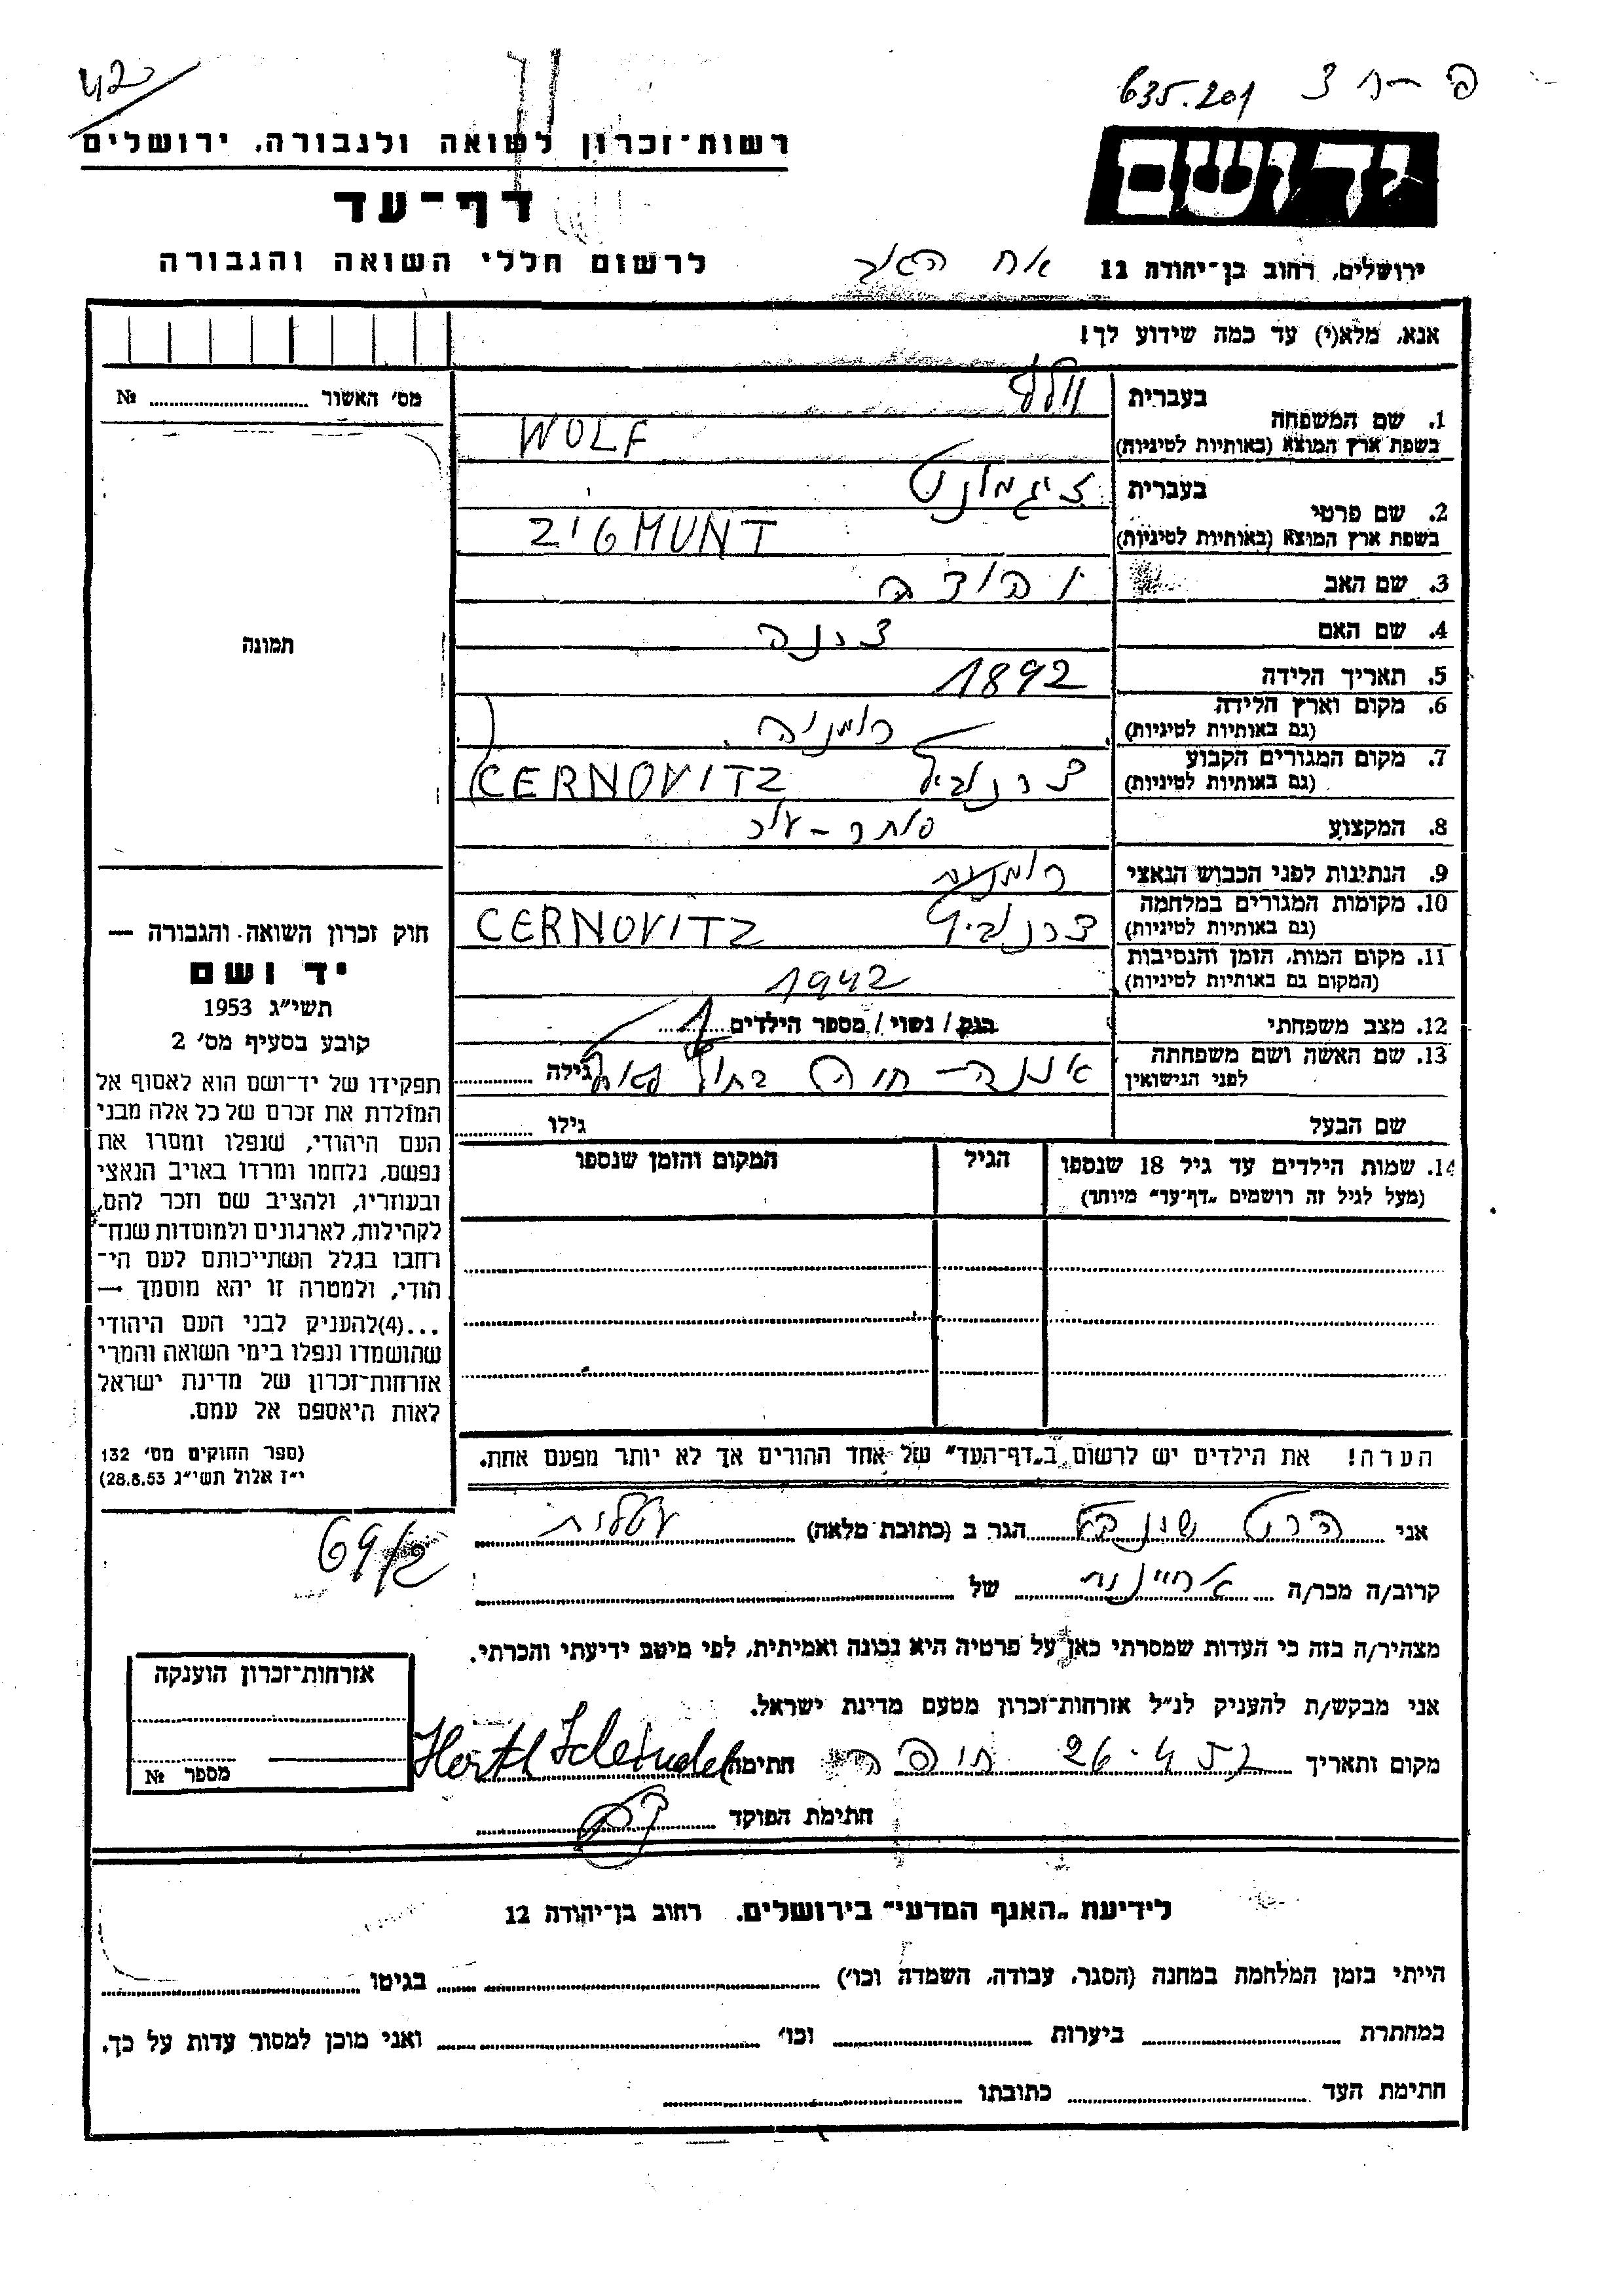 635.201
42
יד ושם
רשות־זכרון לשואה ולגבורה, ירושלים
דף־עד
לרשום חללי השואה והגבורה
ירושלים, רחוב בן־יהודה 12
אנא, מלא(י) עד כמה שידוע לך!
מס' האשור № 
1. שם המשפחה
בעברית וולף
בשפת ארץ המוצא (באותיות לטיניות) WOLF
2. שם פרטי
בעברית זיגמונט
בשפת ארץ המוצא (באותיות לטיניות) ZIGMUNT
3. שם האב יהודה
4. שם האם
5. תאריך הלידה 1892
6. מקום וארץ הלידה רומניה
(גם באותיות לטיניות)
7. מקום המגורים הקבוע
(גם באותיות לטיניות) CERNOVITZ
8. המקצוע
9. הנתינות לפני הכבוש הנאצי רומנית
10. מקומות המגורים במלחמה
(גם באותיות לטיניות) CERNOVITZ
11. מקום המות, הזמן והנסיבות
(המקום גם באותיות לטיניות) 1942
12. מצב משפחתי רווק / נשוי / מספר הילדים 1
13. שם האשה ושם משפחתה
לפני הנישואין חיה גילה
שם הבעל גילו
14. שמות הילדים עד גיל 18 שנספו
(מעל לגיל זה רושמים „דף־עד" מיוחד)
הגיל
המקום והזמן שנספו
תמונה
חוק זכרון השואה והגבורה —
יד ושם
תשי"ג 1953
קובע בסעיף מס' 2
תפקידו של יד־ושם הוא לאסוף אל
המולדת את זכרם של כל אלה מבני
העם היהודי, שנפלו ומסרו את
נפשם, נלחמו ומרדו באויב הנאצי
ובעוזריו, ולהציב שם וזכר להם,
לקהילות, לארגונים ולמוסדות שנח־
רבו בגלל השתייכותם לעם הי־
הודי, ולמטרה זו יהא מוסמך —
...(4) להעניק לבני העם היהודי
שהושמדו ונפלו בימי השואה והמרי
אזרחות־זכרון של מדינת ישראל
לאות היאספם אל עמם.
(ספר החוקים מס' 132
י"ז אלול תשי"ג 28.8.53)
הערה! את הילדים יש לרשום ב„דף־העד" של אחד ההורים אך לא יותר מפעם אחת.
אני הרט הגר ב (כתובת מלאה) עטלית
69/2
קרוב/ה מכר/ה אחיינית של
מצהיר/ה בזה כי העדות שמסרתי כאן על פרטיה היא נכונה ואמיתית, לפי מיטב ידיעתי והכרתי.
אני מבקש/ת להעניק לנ"ל אזרחות־זכרון מטעם מדינת ישראל.
מקום ותאריך 26.4.57 חיפה חתימה
חתימת הפוקד
אזרחות־זכרון הוענקה
מספר №
לידיעת „האגף המדעי" בירושלים, רחוב בן־יהודה 12
הייתי בזמן המלחמה במחנה (הסגר, עבודה, השמדה וכו') בגיטו
במחתרת ביערות וכו' ואני מוכן למסור עדות על כך.
חתימת העד כתובתו